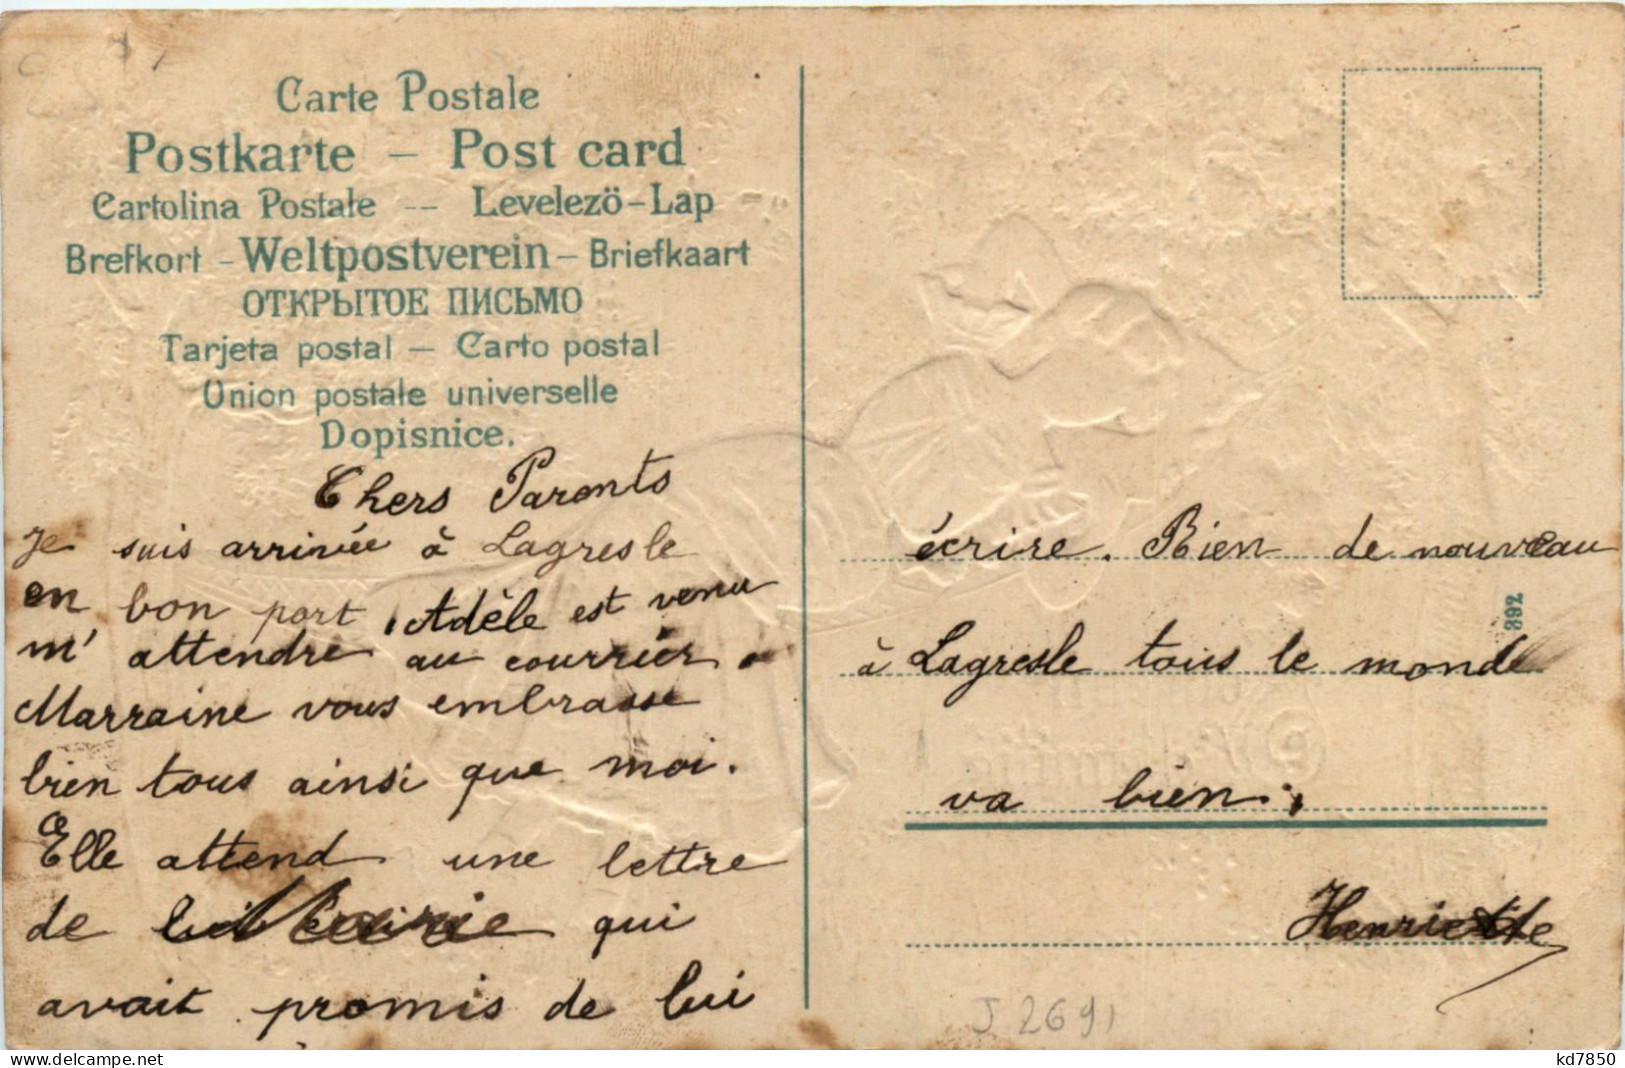 Carte Postale
Postkarte – Post card
Cartolina Postale -- Levelezö-Lap
Brefkort - Weltpostverein - Briefkaart
ОТКРЫТОЕ ПИСЬМО
Tarjeta postal – Carto postal
Union postale universelle
Dopisnice.
Chers Parents
Je suis arrivée à Lagresle
en bon port, Adèle est venu
m'attendre au courrier.
Marraine vous embrasse
bien tous ainsi que moi.
Elle attend une lettre
de qui
avait promis de lui
écrire. Rien de nouveau
à Lagresle tous le monde
va bien.
Henriette
392
J 2691
www.delcampe.net
kd7850